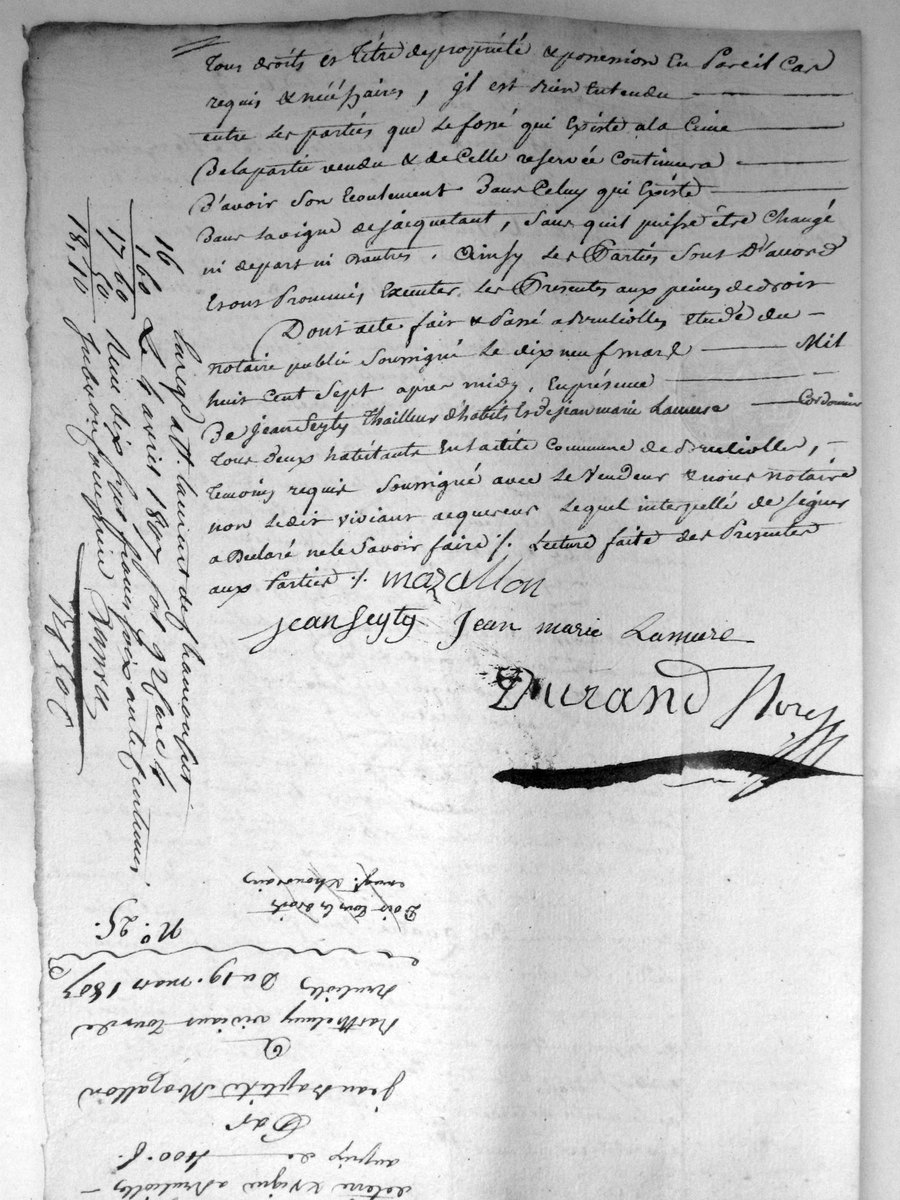 tous droits et titre de propriété & possession En Pareil Cas
requis & nécéssaires, jl est bien Entendu
entre les parties que le fossé qui Existe a la Cime
De la partie vendu & de Celle reservée Continuera
D'avoir Son Ecoulement Dans Celuy qui Existe
Dans la vigne de jacquetant, Sans quil puisse être Changé
ni de part ni D'autres. Ainsy les Parties Sont D'accord
Et ont Prommis Executer les Presentes aux peines de droit
Dont acte fait & Passé a Brulioles Etude du
notaire public Soussigné le dix neuf mars Mil
huit Cent Sept apres midy, En présence
De jean Seyty Thailleur d'habits & de jean marie Lamure Cordonnier
tous Deux habitants En ladite Commune de Brulioles,
temoins requis Soussigné avec le Vendeur & nous notaire
non ledit Viviant acquereur lequel interpellé de Signer
a Declaré ne le Savoir faire /. Lecture faite des Presentes
aux Parties /. mazallon
jean Seyty Jean marie Lamure
Durand Nore
Enregt. att. a
Le 4 avril 1807 fol 92
dix Sept francs soixante Centimes
16
160
1760
50
18.10
17 f 50 c
Dois tous les droits
enregt.
N°. 25.
Du 19. mars 1807
Barthelemy viviant
a
jean Baptiste Mazallon
Par
au prix de 400. f.
de terre & vigne a Brulioles